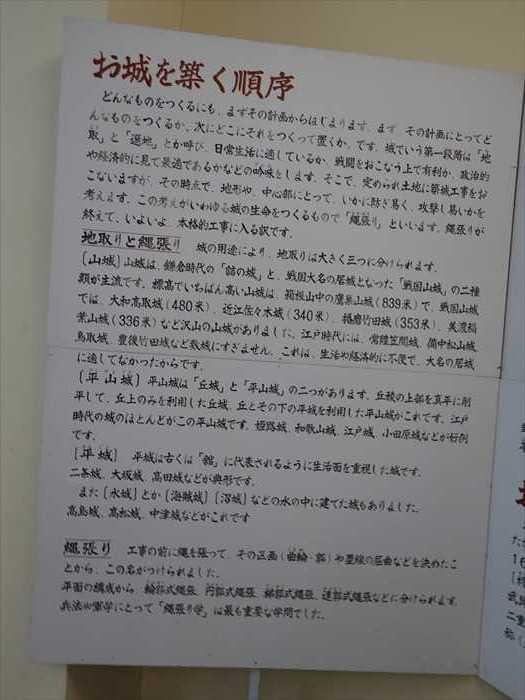 お城を築く順序
どんなものをつくるにも、まずその計画からはじまります。まず、その計画にとってど
んなものをつくるか、次にどこにそれをつくって置くか、です。城でいう第一段階は「地
取」と「選地」とか呼び、日常生活に適しているか、戦闘をおこなう上で有利か、政治的
や経済的に見て最適であるかなどの吟味をします。そこで、定められ土地に築城工事をお
こないますが、その時点で、地形や、中心部にとって、いかに防ぎ易く、攻撃し易いかを
考えます。この考えがいわゆる城の生命をつくるもので「縄張り」といいます。縄張りが
終えて、いよいよ、本格的工事に入る訳です。
地取りと縄張り　城の用途により、地取りは大きく三つに分けられます。
〔山城〕山城は、鎌倉時代の「詰の城」と、戦国大名の居城となった「戦国山城」の二種
類が主流です。標高でいちばん高い山城は、箱根山中の鷹巣山城(839米)で、戦国山城
では、大和高取城(480米)、近江佐々木城(340米)、播磨竹田城(353米)、美濃稲
葉山城(336米)など沢山の山城がありました。江戸時代には、常陸笠間城、備中松山城
鳥取城、豊後竹田城など数城にすぎません。これは、生活や経済的に不便で、大名の居城
に適してなかったからです。
〔平山城〕平山城は「丘城」と「平山城」の二つがあります。丘稜の上部を真平に削
平して、丘上のみを利用した丘城、丘とその下の平城を利用した平山城がこれです。江戸
時代の城のほとんどがこの平山城です。姫路城、和歌山城、江戸城、小田原城などが好例
です。
〔平城〕　平城は古くは「館」に代表されるように生活面を重視した城です。
二条城、大坂城、高田城などが典形です。
また〔水城〕とか〔海賊城〕〔沼城〕などの水の中に建てた城もありました。
高島城、高松城、中津城などがこれです
縄張り　工事の前に縄を張って、その区画(曲輪・郭)や塁線の屈曲などを決めたこ
とから、この名がつけられました。
平面の構成から、輪郭式縄張、円郭式縄張、梯郭式縄張、連郭式縄張などに分けられます。
兵法や軍学にとって「縄張り学」は最も重要な学問でした。